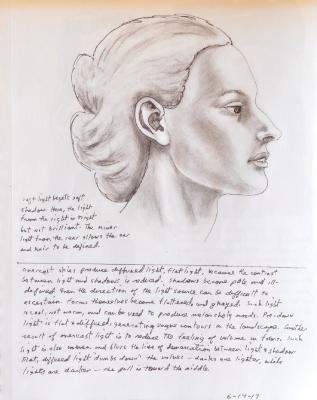 soft light begets soft
shadow. Here, the light
from the right is bright
but not brilliant. The minor
light from the rear allows the ear
and hair to be defined.
overcast skies produce diffused light, flat light, because the contrast
between light and shadow is reduced. Shadows become pale and ill-
defined even the direction of the light source can be difficult to
ascertain. Forms themselves become flattened, and grayed. Such light
is cool, not warm, and can be used to produce melancholy moods. Pre-dawn
light is flat & diffused; generating vague contours in the landscape. Another
result of overcast light is to reduce the feeling of volume in forms. Such
light is also uneven and blurs the line of demarcation between light & shadow
Flat, diffused light "dumbs down" the values – darks are lighter, while
lights are darker – the pull is toward the middle.
6-14-17